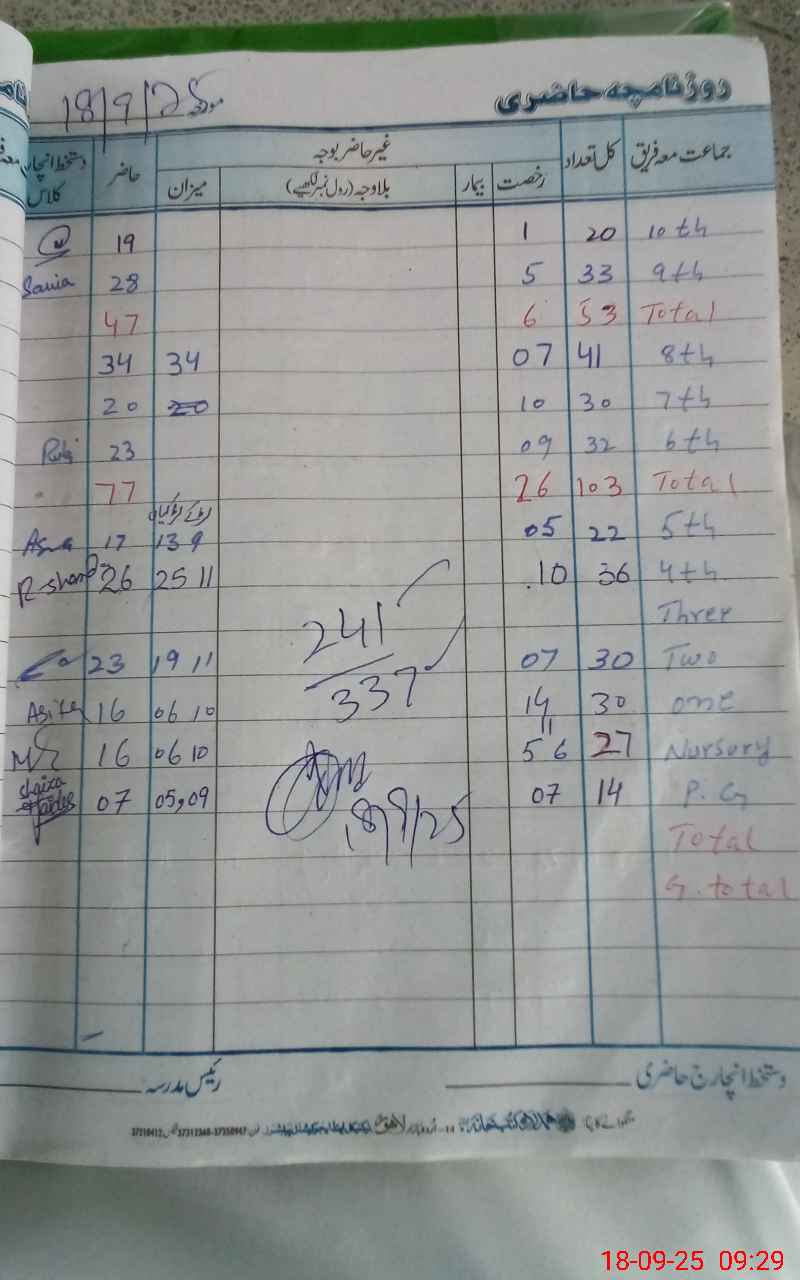 روزنامچہ حاضری
مورخہ 18/9/25
جماعت معہ فریق کل تعداد غیر حاضر بوجہ حاضر دستخط انچارج کلاس
رخصت بیمار بلاوجہ (رول نمبر لکھیے) میزان
10th 20 1 19
9th 33 5 28 Sania
Total 53 6 47
8th 41 07 34 34
7th 30 10 20 20
6th 32 09 23
Total 103 26 77
لڑکے لڑکیاں
5th 22 05 13 9 17
4th 36 10 25 11 26
Three
Two 30 07 19 11 23
one 30 14 06 10 16
Nursory 27 11 06 10 16
5 6
P.G 14 07 05,09 07
Total
G.total
241
337
18/9/25
دستخط انچارج حاضری رئیس مدرسہ
18-09-25 09:29